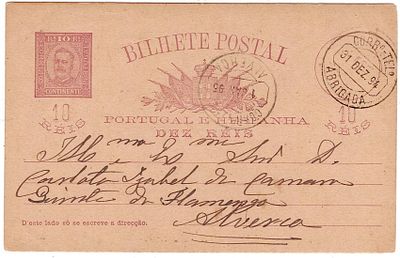 REIS 10 REIS
CONTINENTE
10
REIS
BILHETE POSTAL
PORTUGAL E HESPANHA
DEZ RÉIS
CORREO-TELO
31 DEZ. 94
ABRIGADA
10
REIS
Ill ma e Ex ma Snr D.
Carlota Izabel da Camara
Quinta do Flamengo
Alverca
D'este lado só se escreve a direcção.